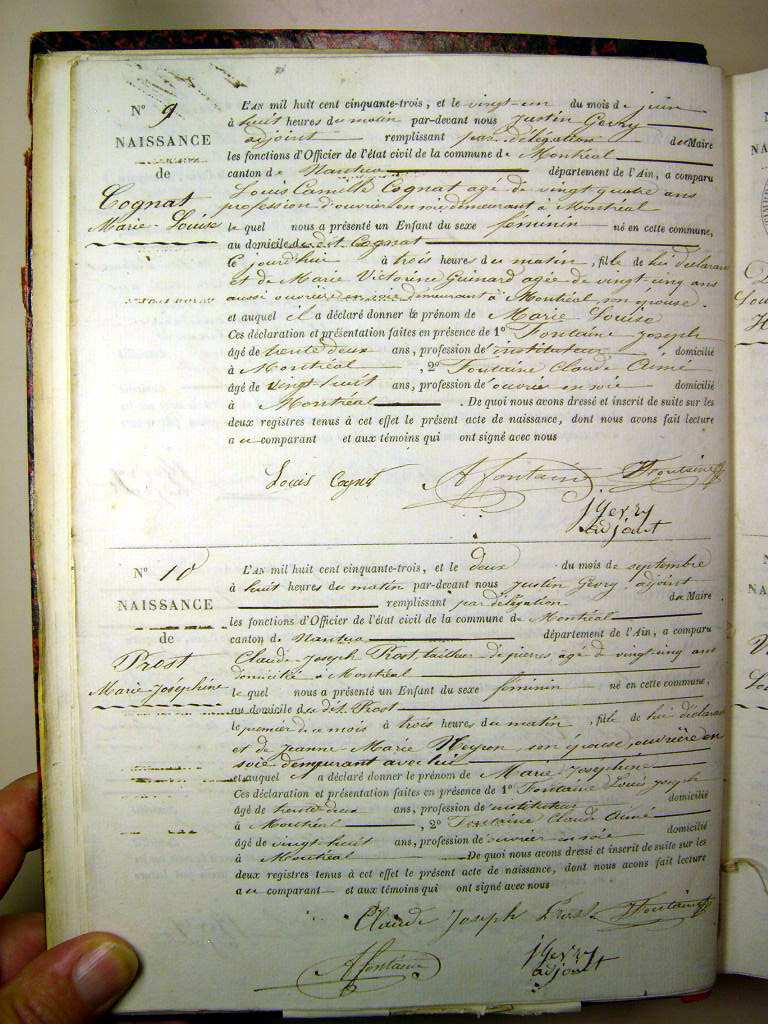 N° 9
NAISSANCE
de
Cognat
Marie Louise
L'AN mil huit cent cinquante-trois, et le vingt-un du mois de juin
à huit heures du matin par-devant nous Justin Gevry
adjoint remplissant par délégation du Maire
les fonctions d'Officier de l'état civil de la commune de Montréal
canton de Nantua département de l'Ain, a comparu
Louis Camille Cognat agé de vingt quatre ans
profession d'ouvrier en soie demeurant à Montréal
le quel nous a présenté un Enfant du sexe féminin né en cette commune,
au domicile du dt Cognat
ce jourd'hui à trois heures du matin, fille de lui déclarant
et de Marie Victorine Guinard agée de vingt-cinq ans
aussi ouvrière en soie demeurant à Montréal, son épouse.
et auquel il a déclaré donner le prénom de Marie Louise
Ces déclaration et présentation faites en présence de 1° Fontaine Joseph
âgé de trente deux ans, profession d'instituteur domicilié
à Montréal, 2° Fontaine Claude Aimé
âgé de vingt huit ans, profession d'ouvrier en soie domicilié
à Montréal. De quoi nous avons dressé et inscrit de suite sur les
deux registres tenus à cet effet le présent acte de naissance, dont nous avons fait lecture
a u comparant et aux témoins qui ont signé avec nous
Louis Cognat Afontaine Jfontaine
J Gevry
adjoint
N° 10
NAISSANCE
de
Prost
Marie-Joséphine
L'AN mil huit cent cinquante-trois, et le deux du mois de septembre
à huit heures du matin par-devant nous Justin Gevry adjoint
remplissant par délégation du Maire
les fonctions d'Officier de l'état civil de la commune de Montréal
canton de Nantua département de l'Ain, a comparu
Claude Joseph Prost, tailleur de pierres agé de vingt-cinq ans
domicilié à Montréal
le quel nous a présenté un Enfant du sexe féminin né en cette commune,
au domicile du dit Prost
le premier de ce mois à trois heures du matin, fille de lui déclarant
et de Jeanne-Marie son épouse, ouvrière en
soie demeurant avec lui
et auquel il a déclaré donner le prénom de Marie-Joséphine
Ces déclaration et présentation faites en présence de 1° Fontaine Louis Joseph
âgé de trente deux ans, profession d'instituteur domicilié
à Montréal, 2° Fontaine Claude Aimé
âgé de vingt huit ans, profession d'ouvrier en soie domicilié
à Montréal De quoi nous avons dressé et inscrit de suite sur les
deux registres tenus à cet effet le présent acte de naissance, dont nous avons fait lecture
a u comparant et aux témoins qui ont signé avec nous
Claude Joseph Prost Jfontaine
Afontaine J Gevry
adjoint